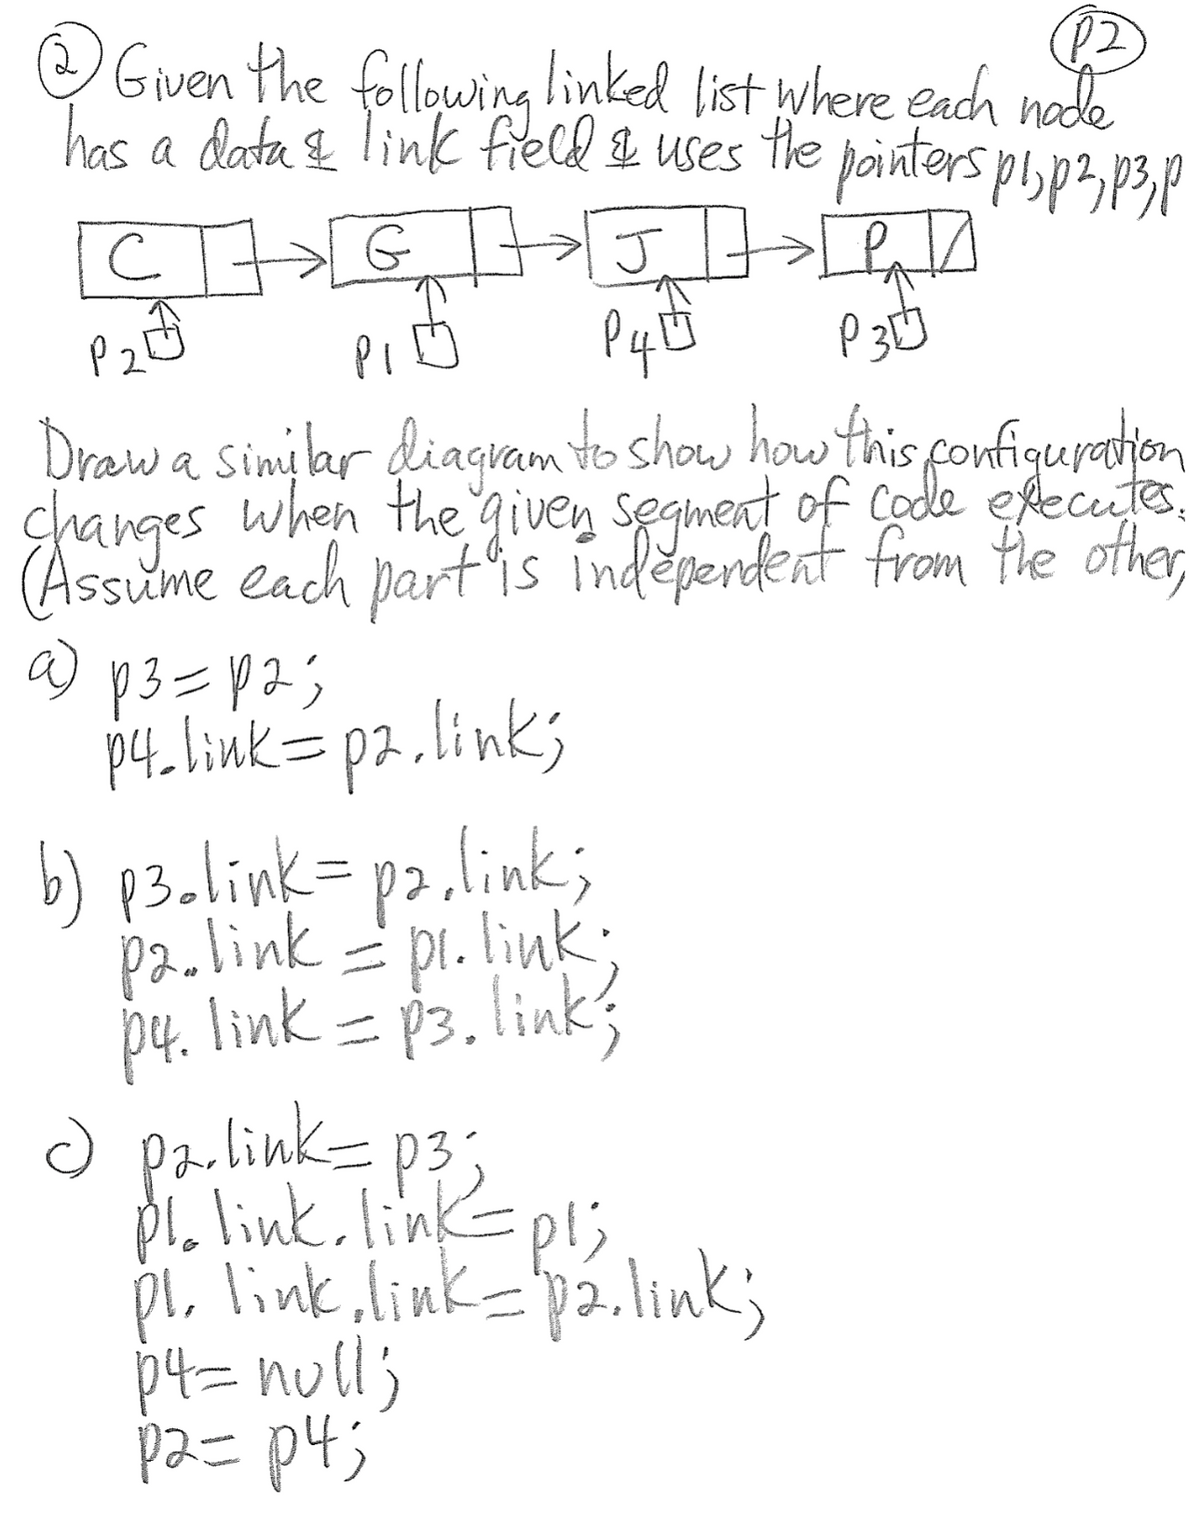 ② Given the following linked list where each node
P2
has a data & link field & uses the pointers p1,p2,p3,p
C G J P
P2 P1 P4 P3
Draw a similar diagram to show how this configuration
changes when the given segment of code executes.
(Assume each part is independent from the other,
a) p3=p2;
p4.link=p2.link;
b) p3.link=p2.link;
p2.link=p1.link;
p4.link=p3.link;
c) p2.link=p3;
p1.link.link=p1;
p1.link.link=p2.link;
p4=null;
p2=p4;